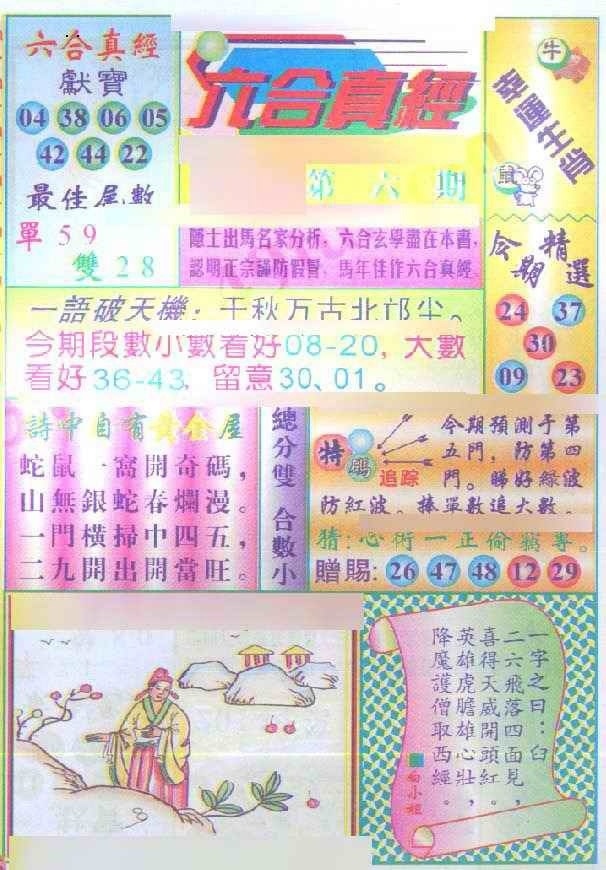 六合真經
獻寶
04 38 06 05
42 44 22
最佳尾數
單59
雙28
六合真經
第六期
隱士出馬名家分析，六合玄學盡在本書，
認明正宗謹防假冒，馬年佳作六合真經
牛
幸運生肖
鼠
今期精選
24 37
30
09 23
一語破天機：千秋万古北邙尘。
今期段數小數看好08-20，大數
看好36-43，留意30、01。
詩中自有黃金屋
蛇鼠一窩開奇碼，
山無銀蛇春爛漫。
一門橫掃中四五，
二九開出開當旺。
總分雙 合數小
特碼
追踪
今期預測于第
五門，防第四
門。睇好綠波
防紅波。捧單數追大數。
猜：心術一正偷竊專。
贈賜：26 47 48 12 29
一字之曰：臼
二六飛落四面見，
喜得天威開頭紅。
英雄虎膽雄心壯，
降魔護僧取西經。
白小姐